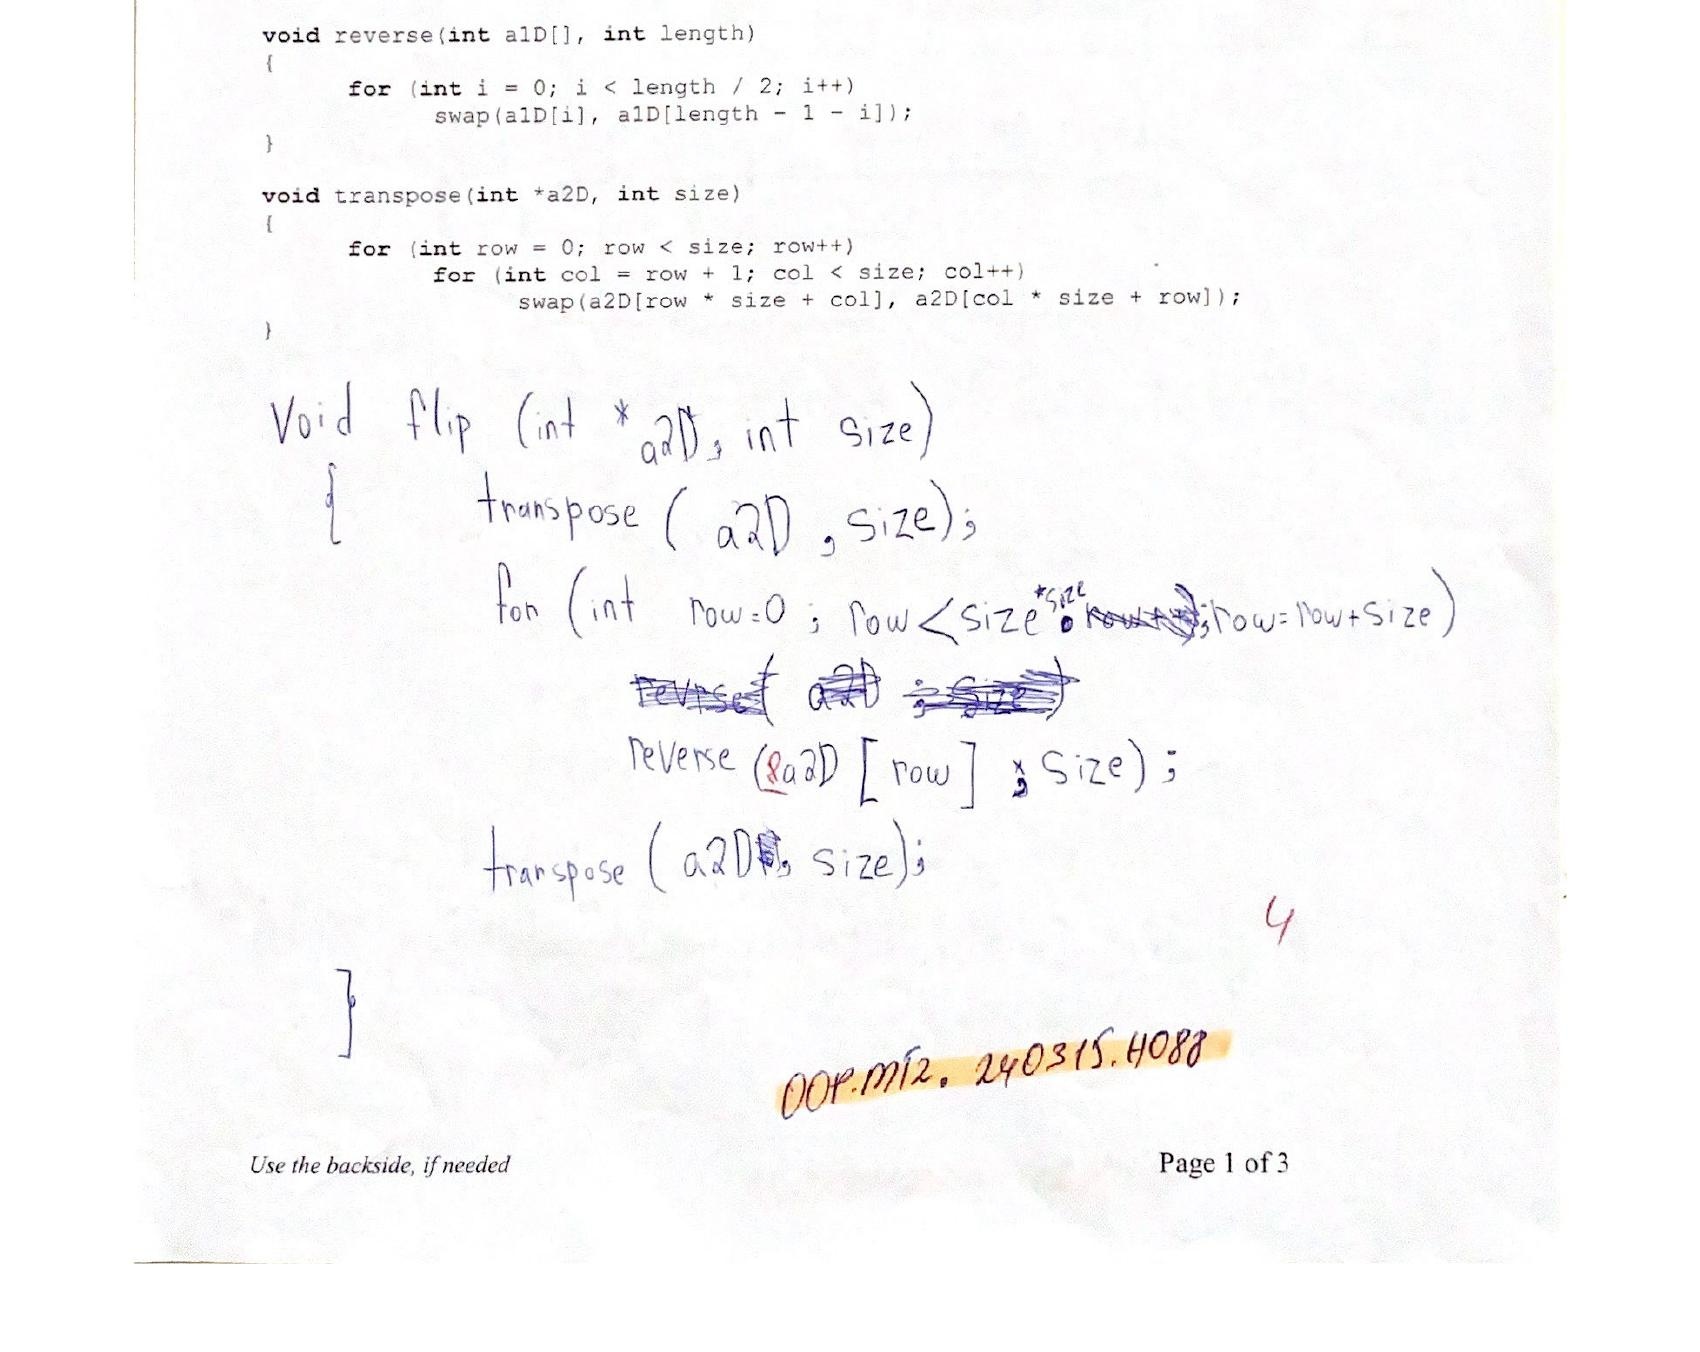 void reverse(int a1D[], int length)
{
for (int i = 0; i < length / 2; i++)
swap(a1D[i], a1D[length - 1 - i]);
}
void transpose(int *a2D, int size)
{
for (int row = 0; row < size; row++)
for (int col = row + 1; col < size; col++)
swap(a2D[row * size + col], a2D[col * size + row]);
}
Void flip (int *a2D, int size)
{ transpose ( a2D , size);
for (int row=0 ; row<size*size ; row=row+size)
reverse (&a2D [row] , size) ;
transpose ( a2D, size);
4
}
OOP.MT2. 240315.H088
Use the backside, if needed
Page 1 of 3